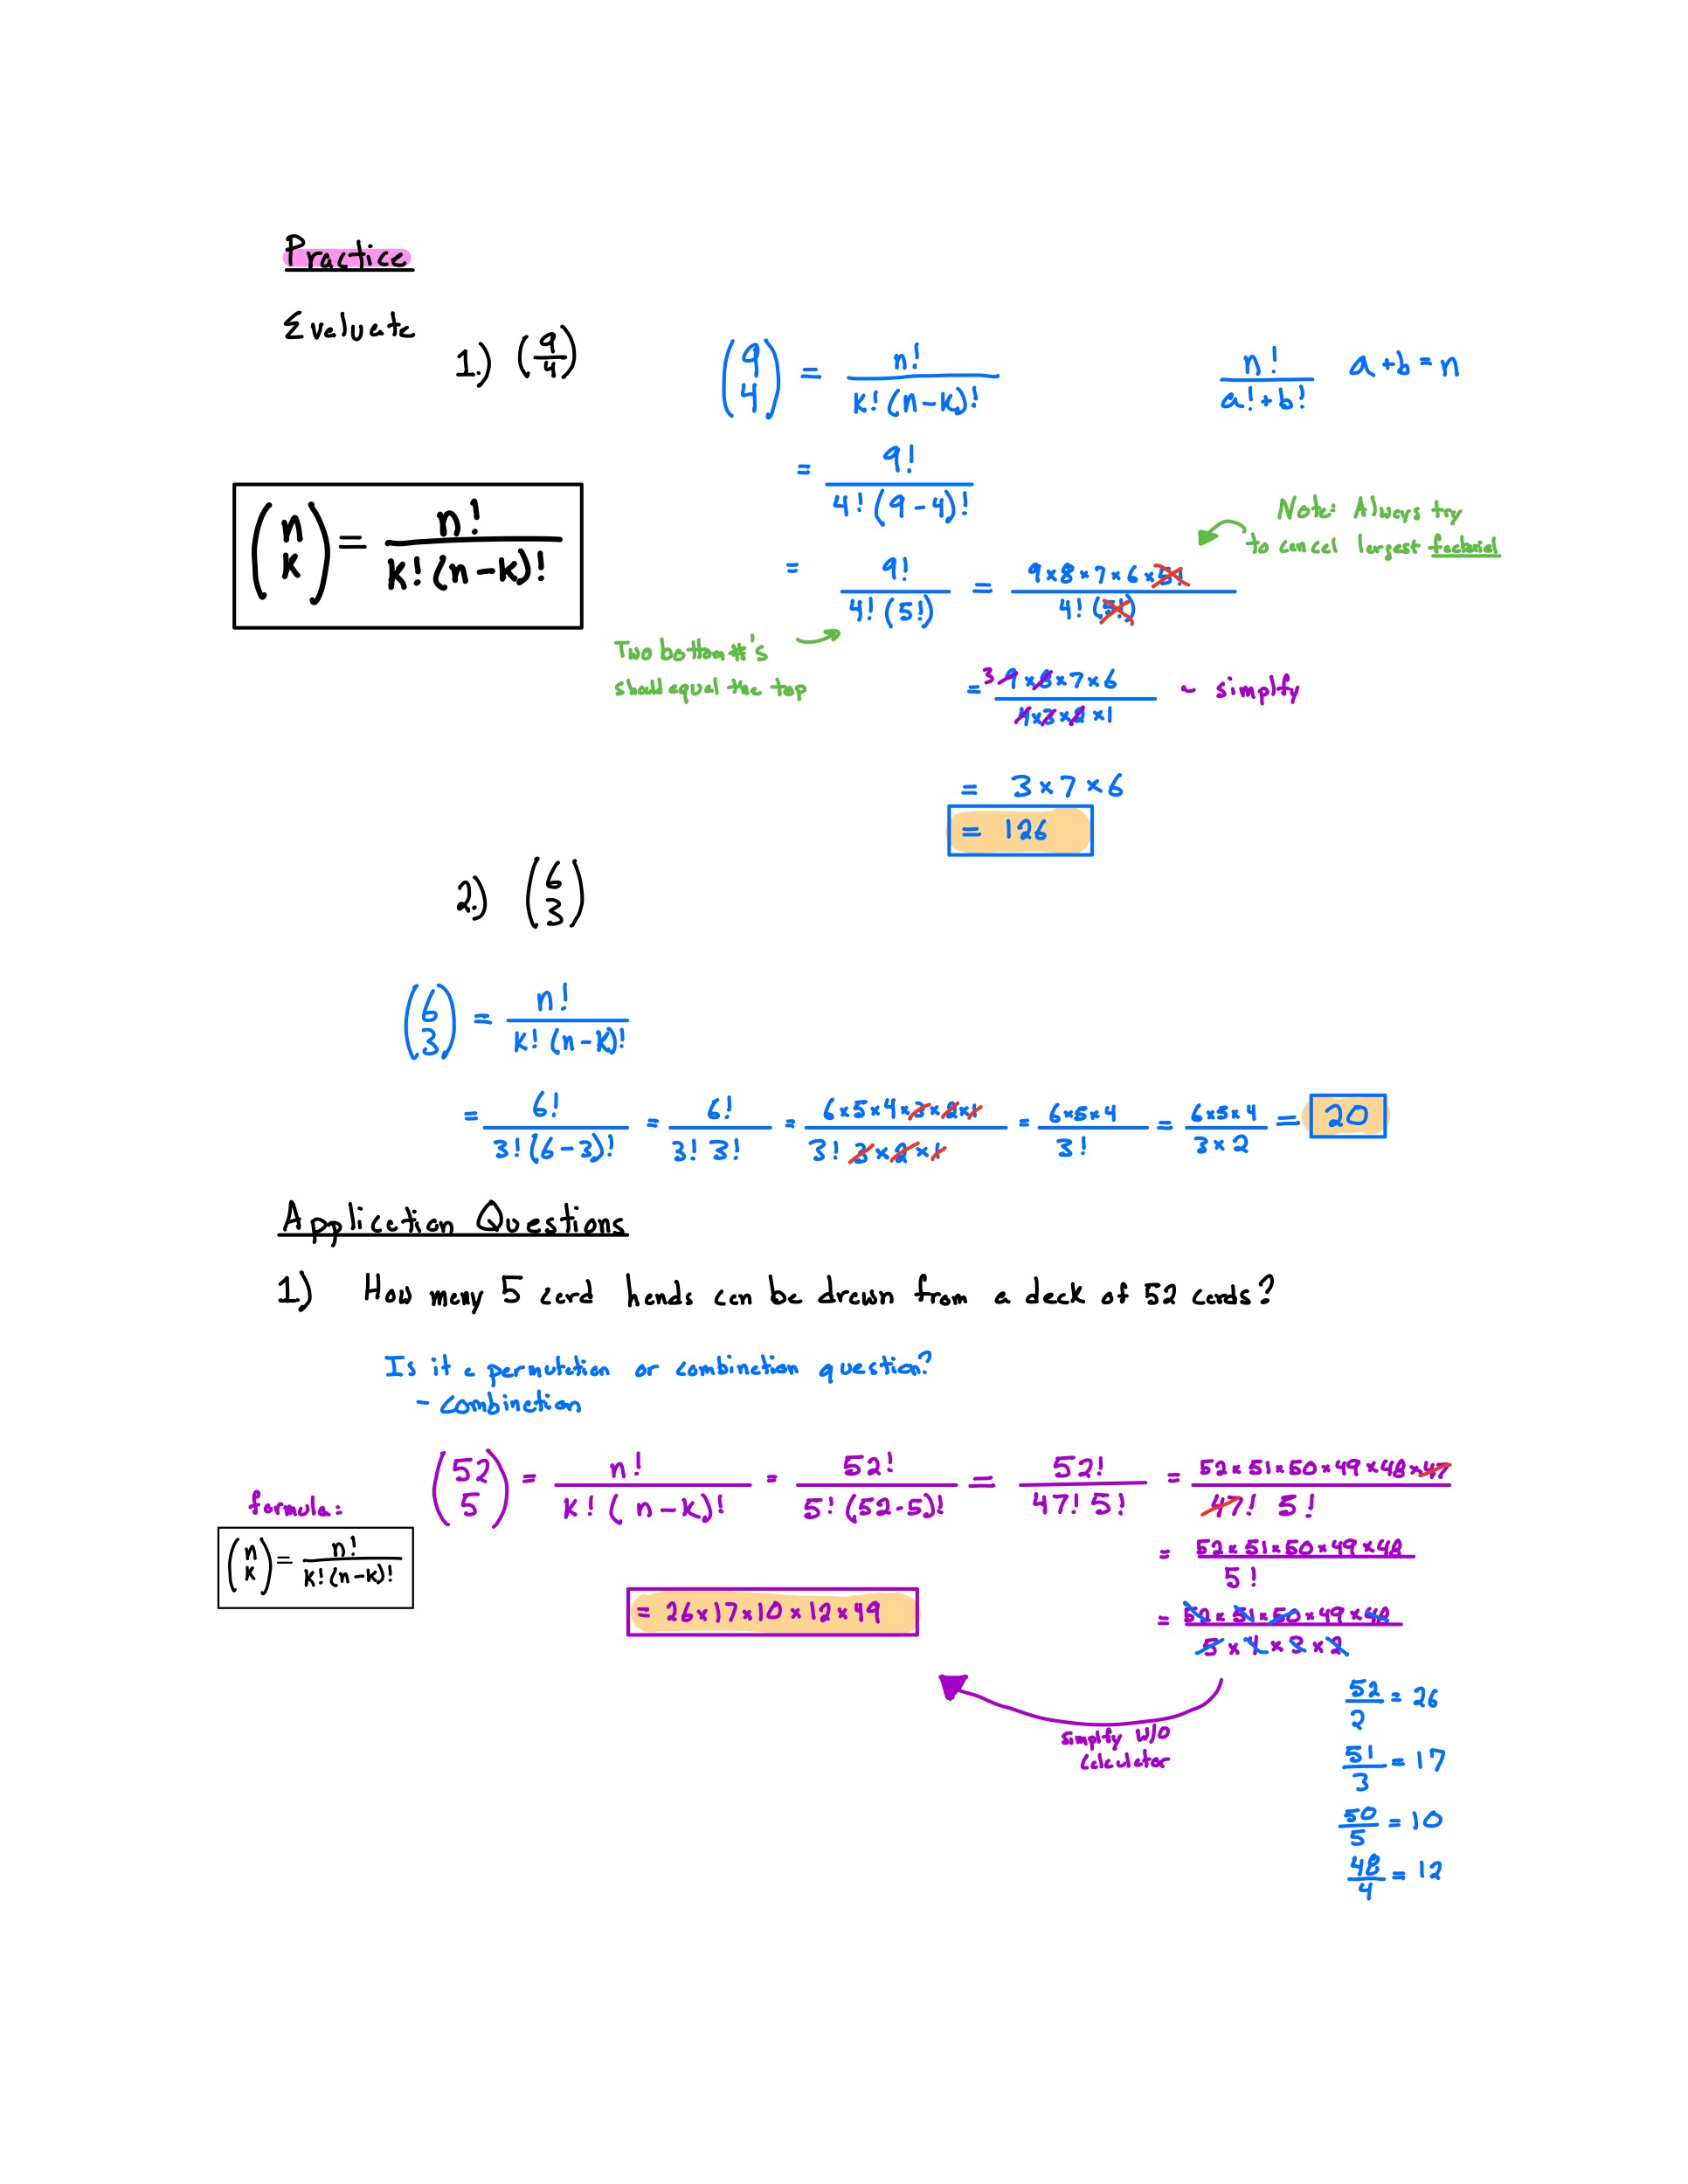 Practice
Evaluate
1.) (9/4)
(9 4) = n! / k!(n-k)!
n! / a!+b!   a+b=n
= 9! / 4!(9-4)!
(n k) = n! / k!(n-k)!
Note: Always try
to cancel largest factorial
= 9! / 4!(5!) = 9×8×7×6×5! / 4!(5!)
Two bottom #'s
should equal the top
= 3 9×8×7×6 / 4×3×2×1 ~ simplfy
= 3×7×6
= 126
2.) (6 3)
(6 3) = n! / k!(n-k)!
= 6! / 3!(6-3)! = 6! / 3! 3! = 6×5×4×3×2×1 / 3! 3×2×1 = 6×5×4 / 3! = 6×5×4 / 3×2 = 20
Application Questions
1.) How many 5 card hands can be drawn from a deck of 52 cards?
Is it a permutation or combination question?
- combination
(52 5) = n! / k!(n-k)! = 52! / 5!(52-5)! = 52! / 47! 5! = 52×51×50×49×48×47 / 47! 5!
formula:
(n k) = n! / k!(n-k)!
= 52×51×50×49×48 / 5!
= 26×17×10×12×49
= 52×51×50×49×48 / 5×4×3×2
simplfy w/o
calculator
52/2 = 26
51/3 = 17
50/5 = 10
48/4 = 12